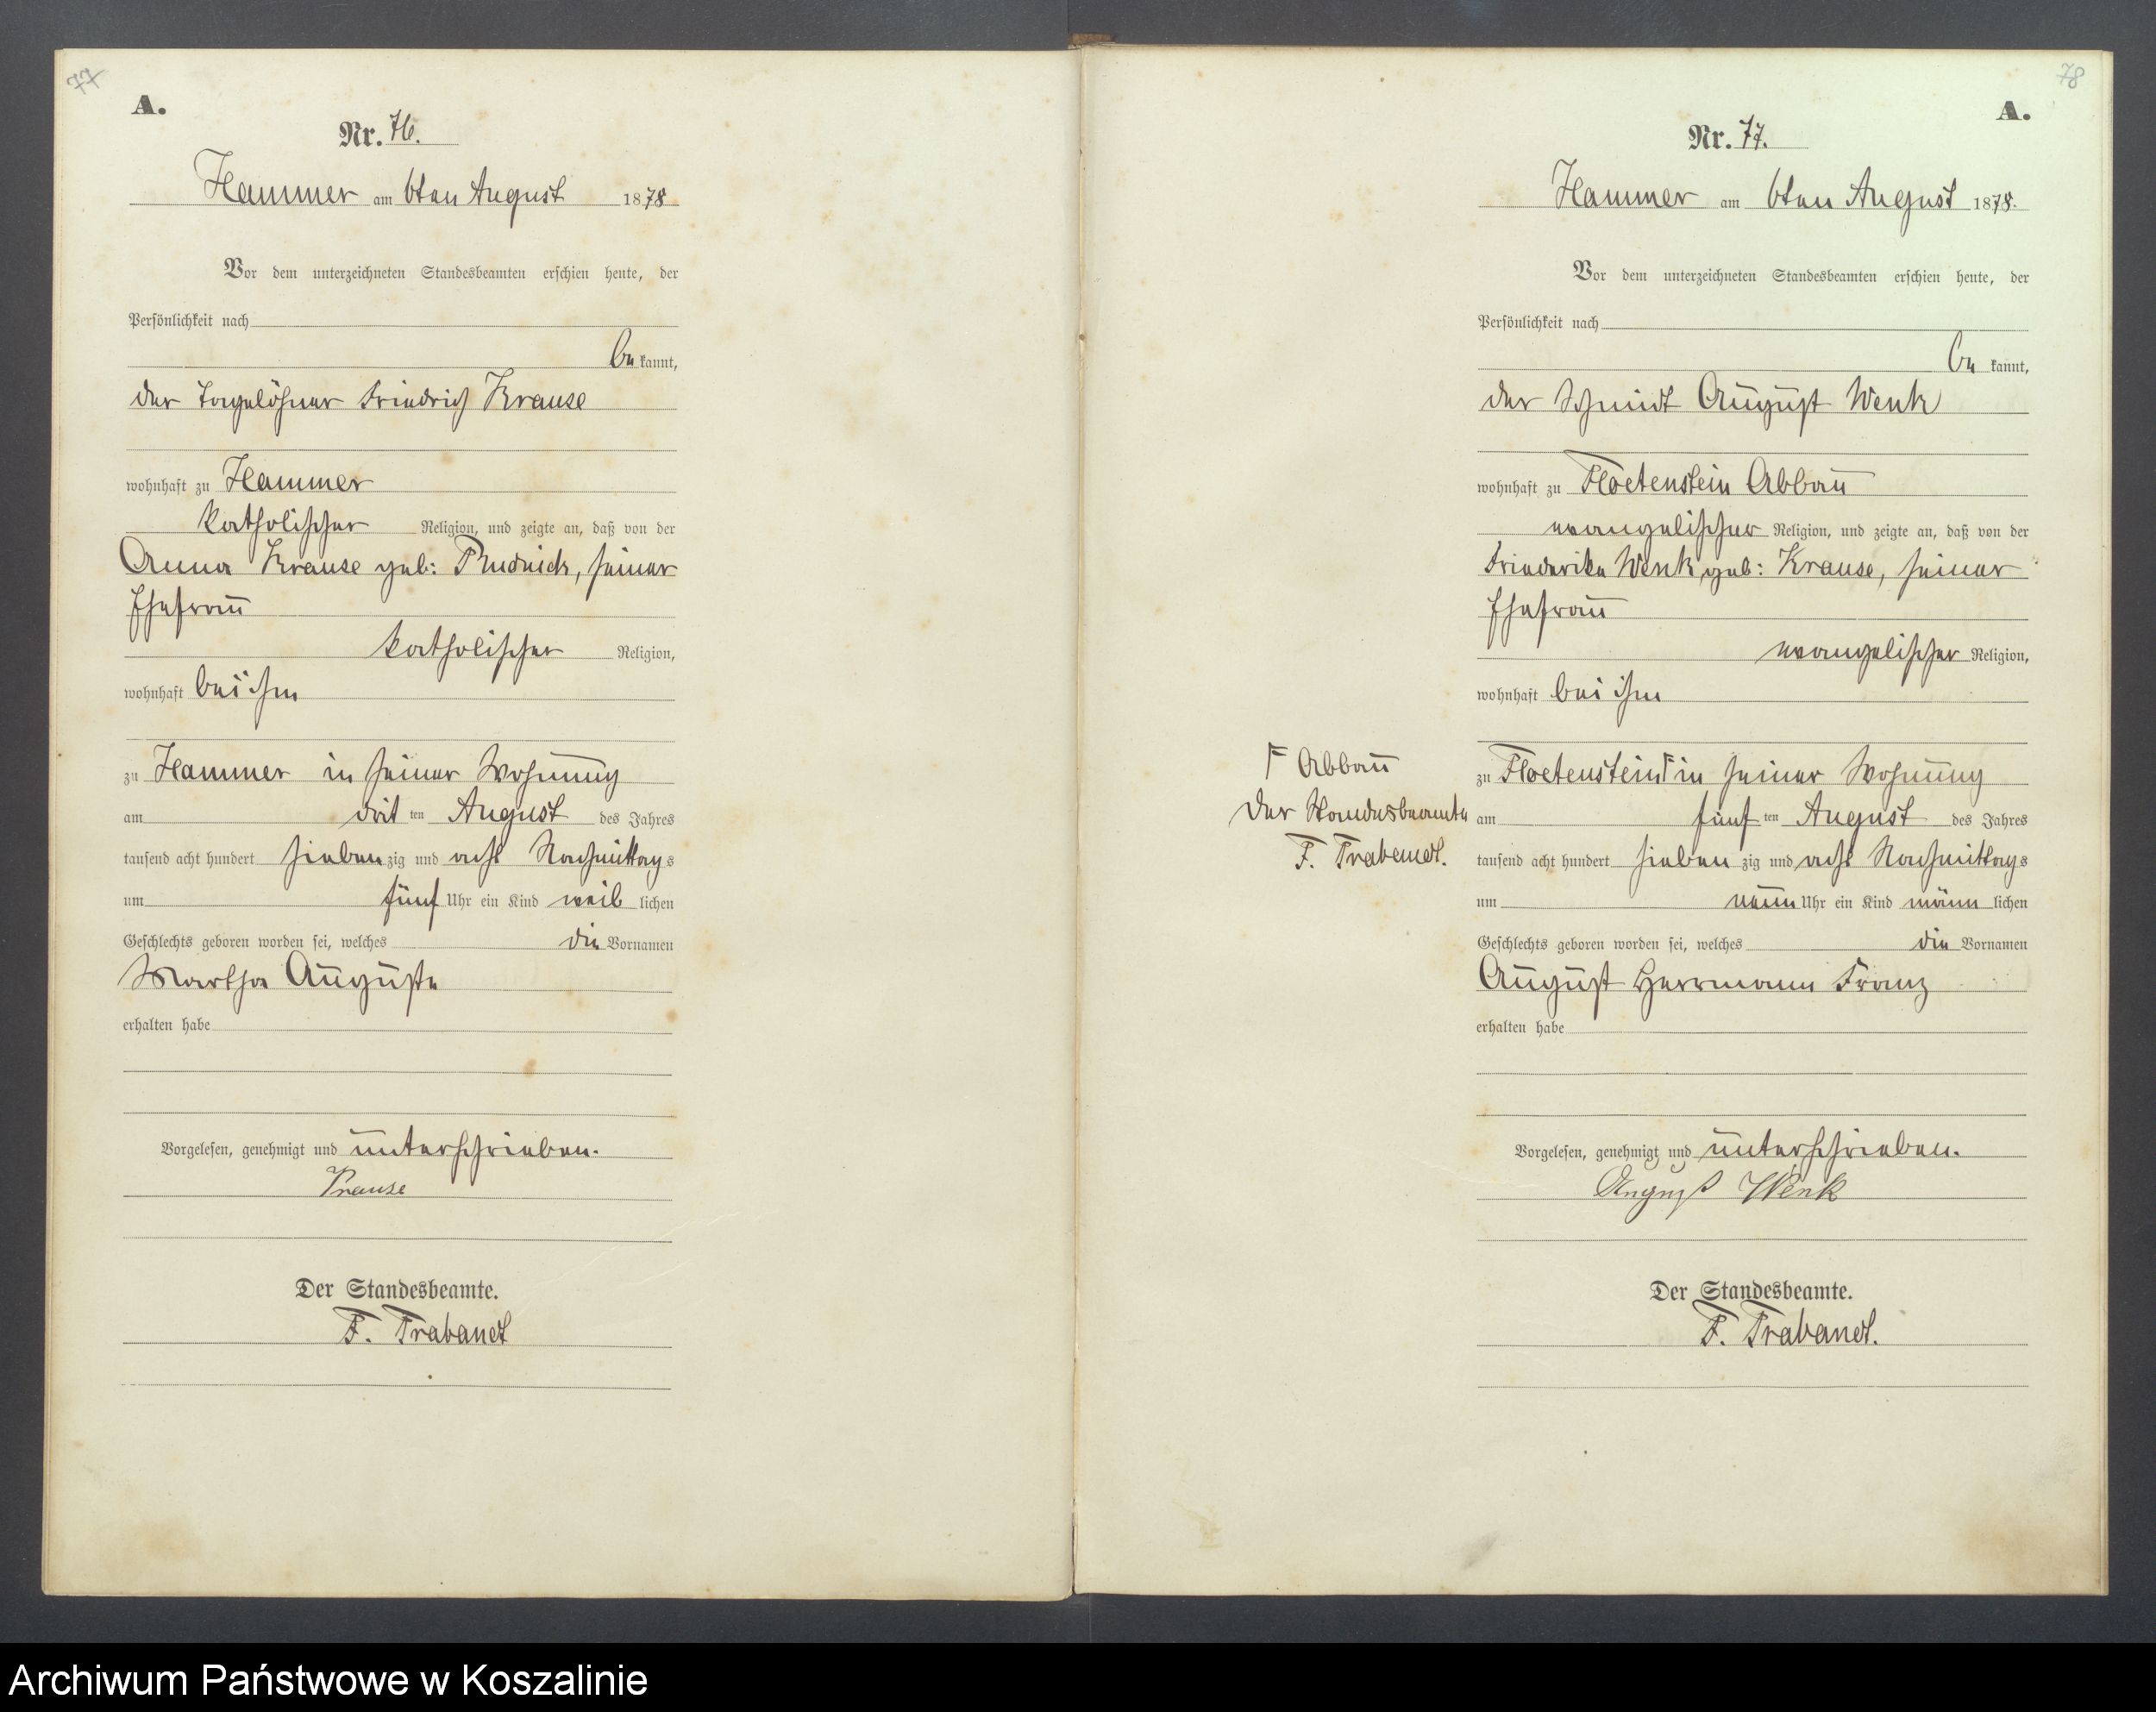 77
A.
Nr. 76.
Hammer am 6ten August 1878
Vor dem unterzeichneten Standesbeamten erschien heute, der
Persönlichkeit nach
be kannt,
der Tagelöhner Friedrich Krause
wohnhaft zu Hammer
katholischer Religion, und zeigte an, daß von der
Anna Krause geb: Rudnick, seiner
Ehefrau
katholischer Religion,
wohnhaft bei ihm
zu Hammer in seiner Wohnung
am drit ten August des Jahres
tausend acht hundert sieben zig und acht Nachmittag s
um fünf Uhr ein Kind weib lichen
Geschlechts geboren worden sei, welches die Vornamen
Martha Auguste
erhalten habe
Vorgelesen, genehmigt und unterschrieben.
Krause
Der Standesbeamte.
F. Trabandt
78
A.
Nr. 77.
Hammer am 6ten August 1878.
Vor dem unterzeichneten Standesbeamten erschien heute, der
Persönlichkeit nach
be kannt,
der Schmidt August Wenk
wohnhaft zu Floetenstein Abbau
evangelischer Religion, und zeigte an, daß von der
Friederike Wenk geb: Krause, seiner
Ehefrau
evangelischer Religion,
wohnhaft bei ihm
zu Floetenstein Γ in seiner Wohnung
am fünf ten August des Jahres
tausend acht hundert sieben zig und acht Nachmittag s
um neun Uhr ein Kind männ lichen
Geschlechts geboren worden sei, welches die Vornamen
August Herrmann Franz
erhalten habe
Γ Abbau
Der Standesbeamte
F. Trabandt.
Vorgelesen, genehmigt und unterschrieben.
August Wenk
Der Standesbeamte.
F. Trabandt.
Archiwum Państwowe w Koszalinie